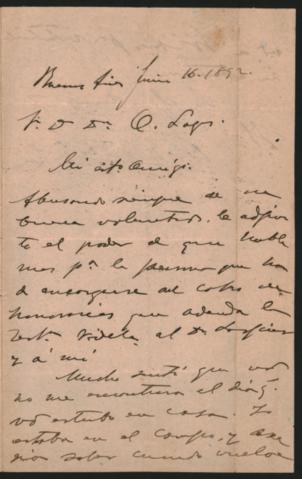 Buenos Aires Junio 16. 1892.
Sr. D Dr. O. Lagos.
Mi est.º Amigo.
Abusando siempre de su
buena voluntad, le adjun
to el poder de que habla
mos p.ª la persona que ha
de encargarse del cobro de
honorarios que adeuda la
test.ª Videla al Dr.
y á mí
Mucho sentí que vd
no me encontrara el día q.
vd estuvo en casa. Yo
estaba en el campo, y
saber cuando vuelva